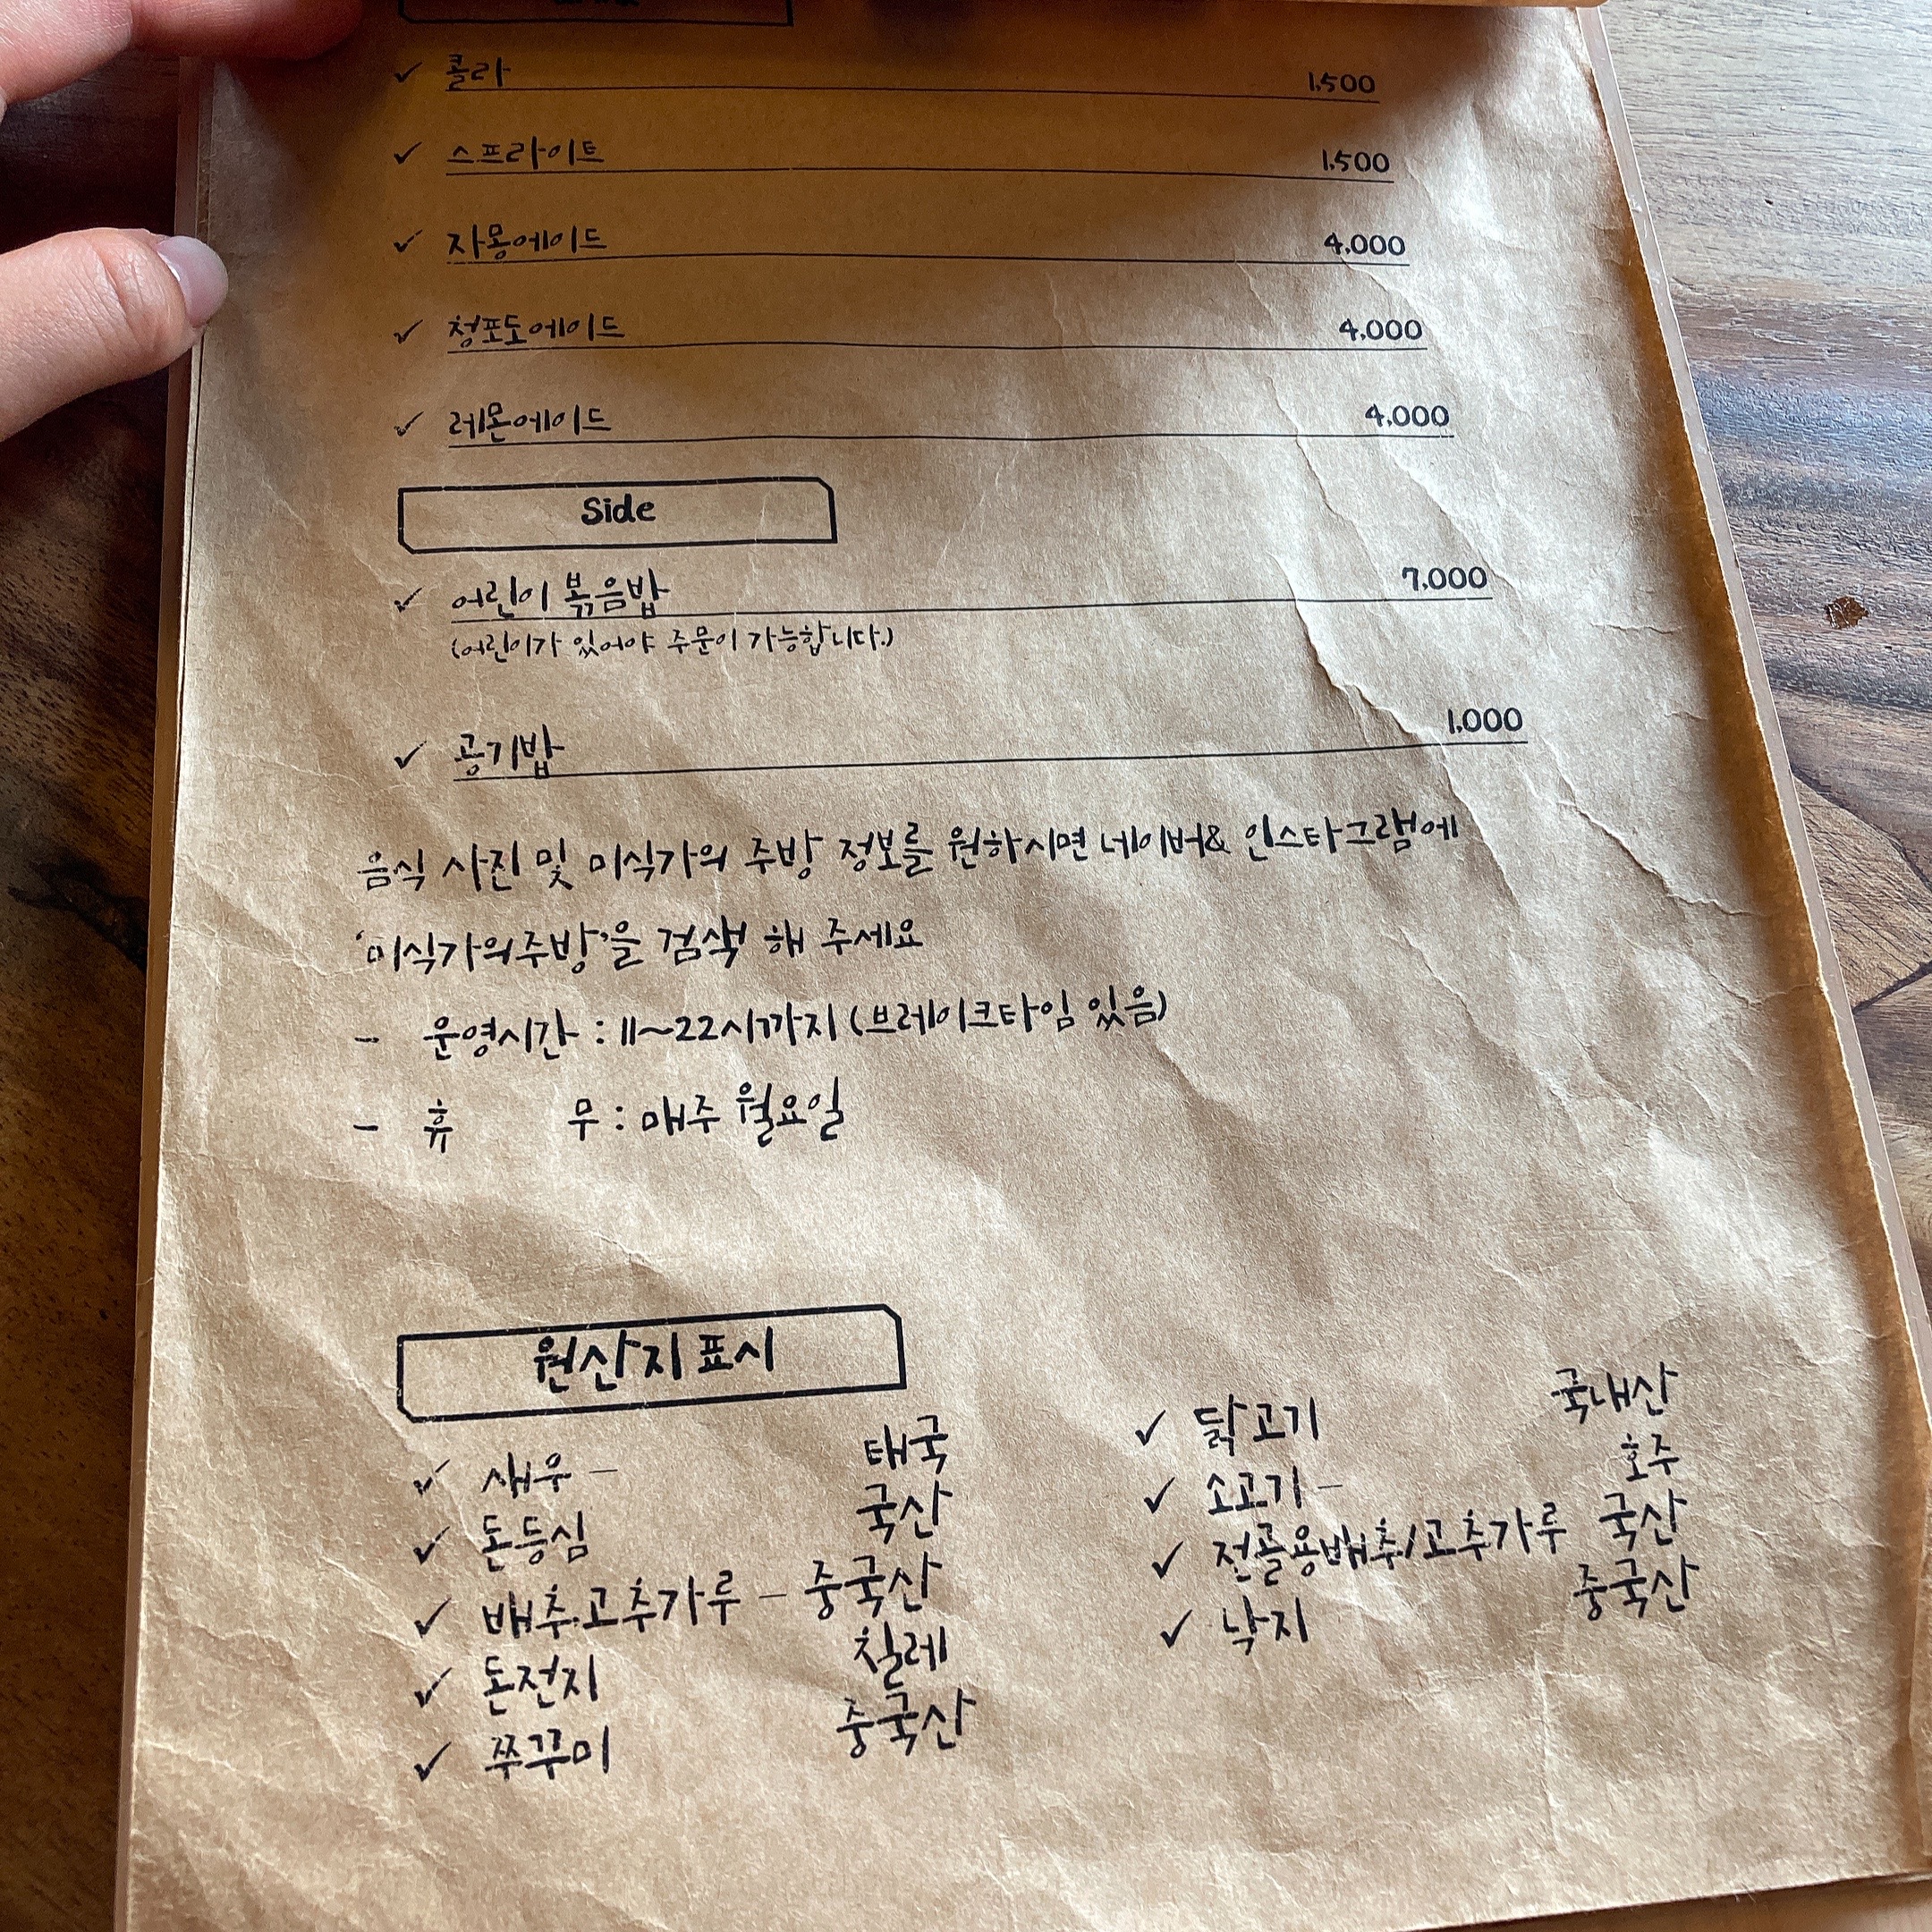 콜라 1,500
스프라이트 1,500
자몽에이드 4,000
청포도에이드 4,000
레몬에이드 4,000
Side
어린이 볶음밥 7,000
(어린이가 있어야 주문이 가능합니다.)
공기밥 1,000
음식 사진 및 미식가의 주방 정보를 원하시면 네이버& 인스타그램에
'미식가의주방'을 검색 해 주세요
- 운영시간 : 11~22시까지 (브레이크타임 있음)
- 휴 무 : 매주 월요일
원산지 표시
새우 - 태국
돈등심 국산
배추.고추가루 - 중국산
돈전지 칠레
쭈꾸미 중국산
닭고기 국내산
소고기 - 호주
전골용배추/고추가루 국산
낙지 중국산